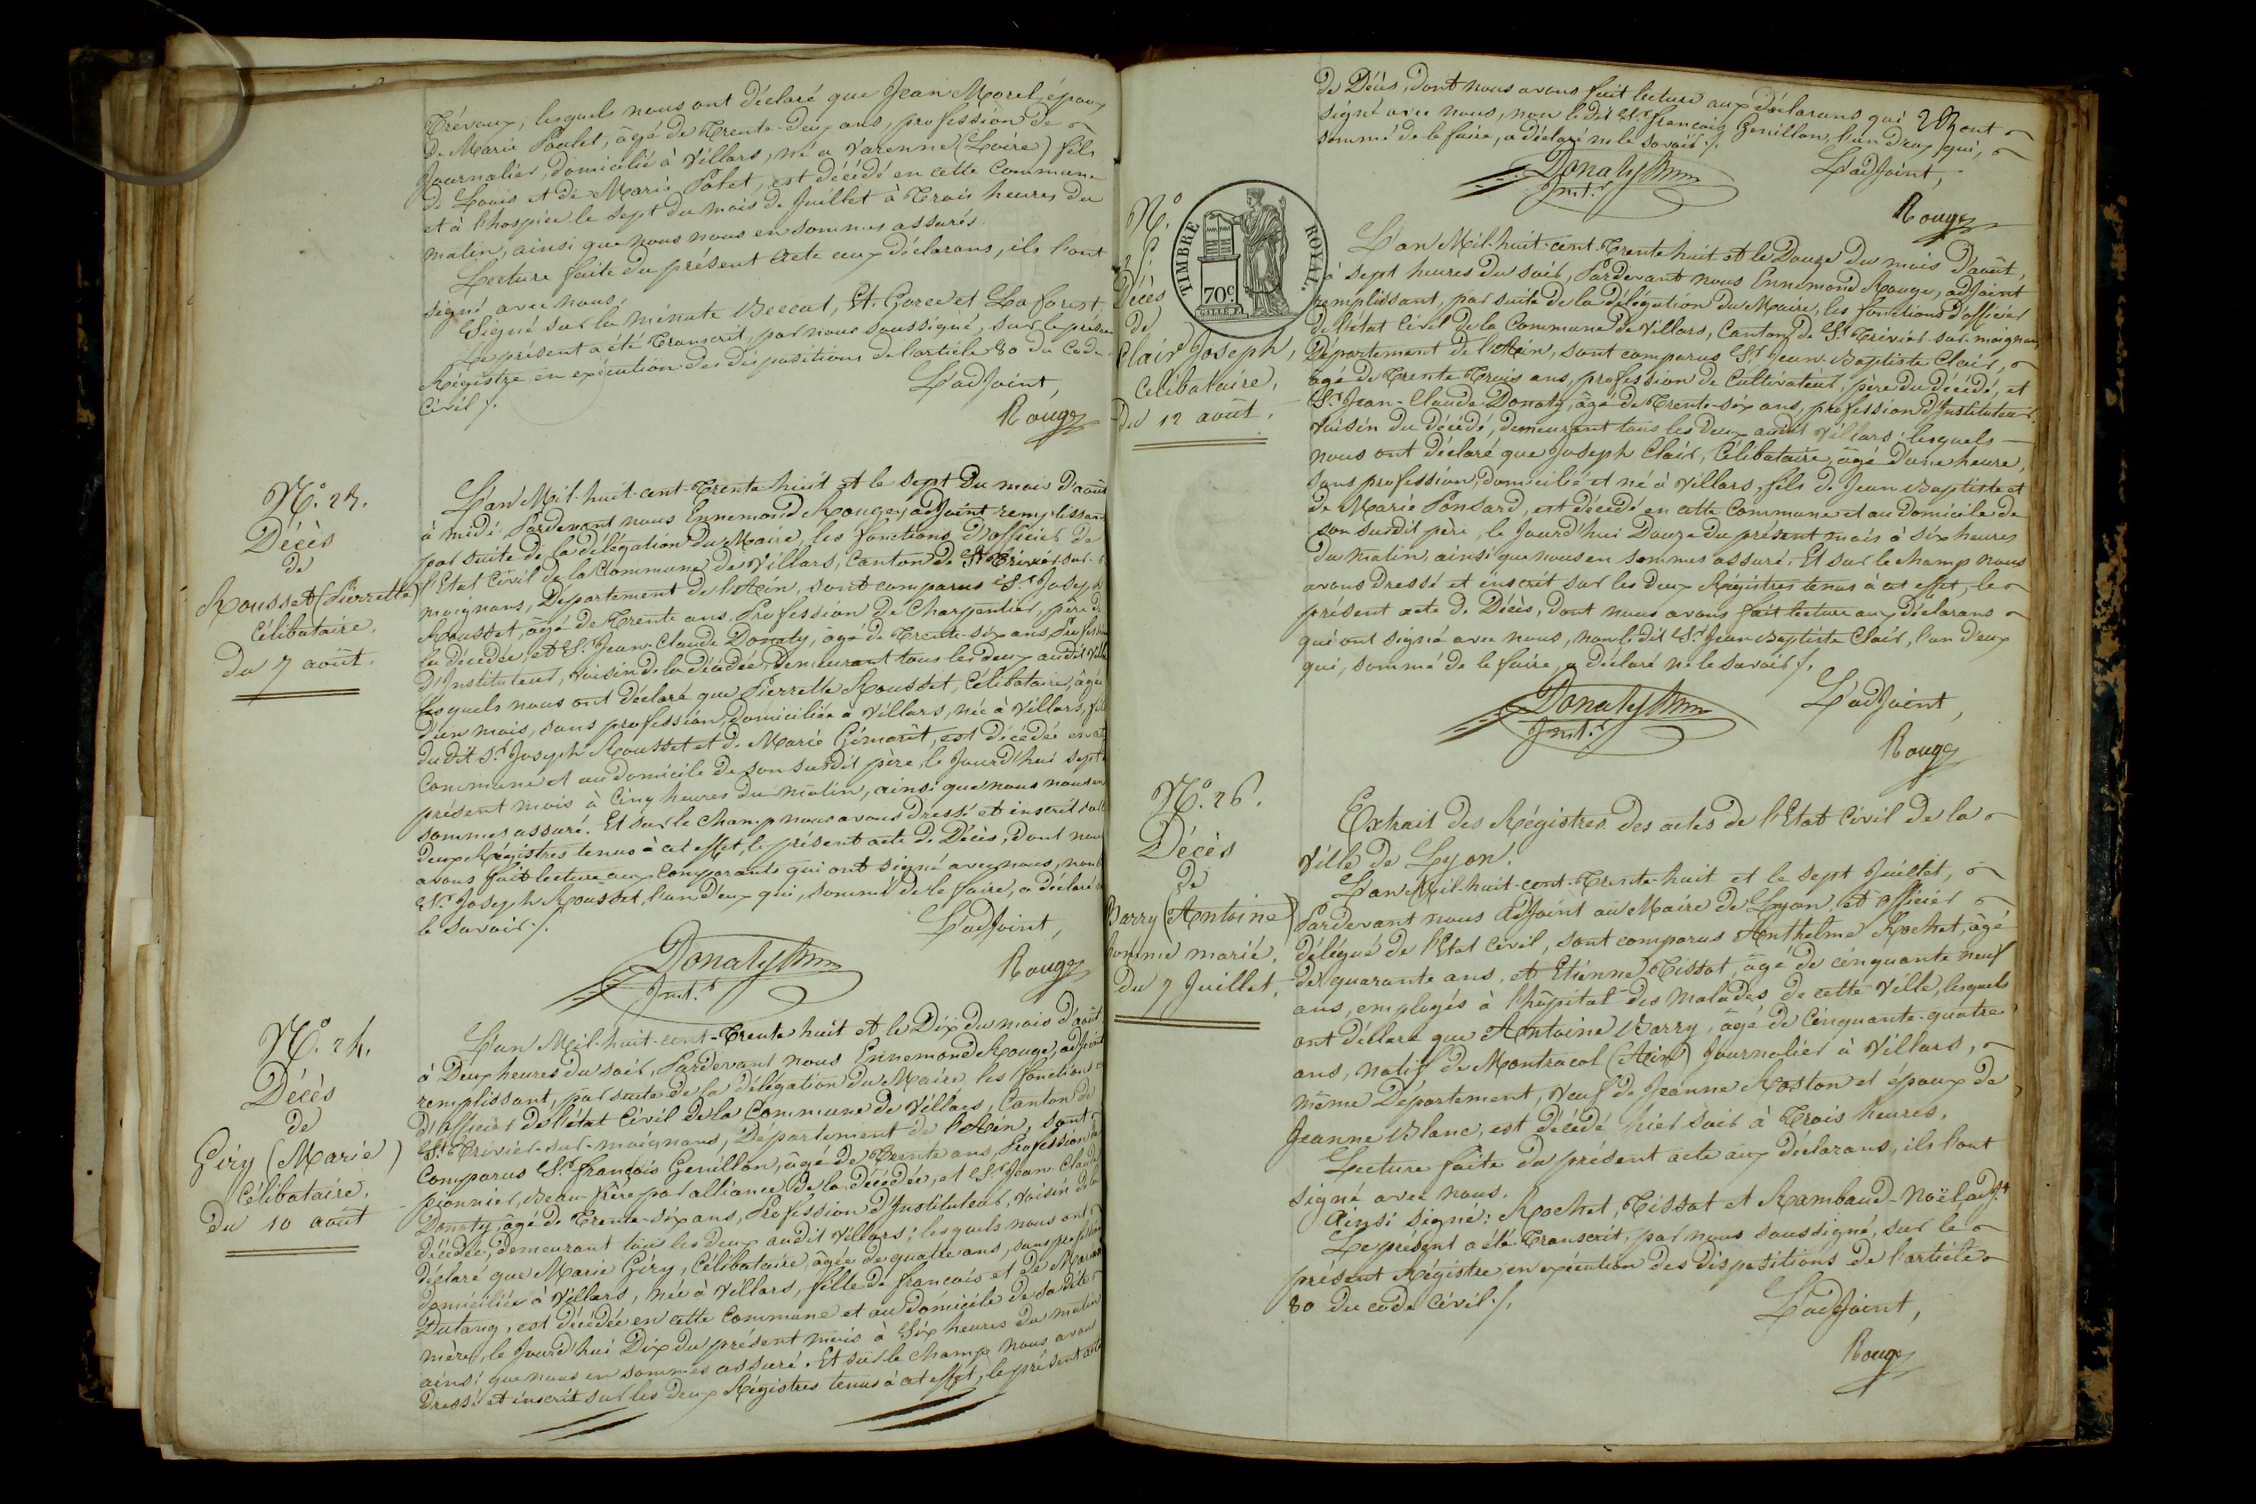 Trévoux; lesquels nous ont déclaré que Jean Morel, époux
de Marie Poulet, âgé de Trente-deux ans, profession de
Journalier, domicilié à Villars, né à Varenne (Loire) fils
de Louis et de Marie Polet, est décédé en cette commune
et à l'hospice le sept du mois de Juillet à Trois heures du
matin, ainsi que nous nous en sommes assurés.
Lecture faite du présent acte aux déclarans, ils l'ont
signé avec nous.
Signé sur la minute Beccat, St. Gorce et Laforest
Le présent a été Transcrit, par nous soussigné, sur le présent
Régistre en exécution des dispositions de l'article 80 du Code
Civil ./.
L'adjoint,
Rouge
N.º 23.
Décès
de
Rousset (Pierrette)
Célibataire.
du 7 août.
L'an Mil-huit-cent-Trente huit et le sept Du mois d'août
à midi Pardevant nous Ennemond Rouge, adjoint remplissant
par suite de la délégation du Maire, les fonctions d'officier de
l'Etat Civil de la Commune de Villars, Canton de St Trivier-sur-
moignans, Département de l'Ain, sont comparus Sr Joseph
Rousset, âgé de Trente ans, Profession de Charpentier, père de
la décédée, et Sr. Jean-Claude Donaty, âgé de Trente-six ans, Profession
d'Instituteur, voisin de la décédée, Demeurant tous les deux audit Villars
lesquels nous ont déclaré que Pierrette Rousset, Célibataire, âgée
d'un mois, sans profession, domiciliée à Villars, née à Villars, fille
dudit Sr Joseph Rousset et de Marie Gimaret, est décédée en cette
Commune et au domicile de son susdit père, le Jourd'hui sept
présent mois à Cinq heures du matin, ainsi que nous nous en
sommes assuré. Et sur le champ nous avons dressé et inscrit sur les
deux Régistres tenus à cet effet, le présent acte de Décès, dont nous
avons fait lecture aux Comparants qui ont signé avec nous, non le
Sr. Joseph Rousset, l'un d'eux qui, sommé de le faire, a déclaré ne
le savoir ./.
L'adjoint,
Donaty
Inst.r
Rouge
N.º 24.
Décès
de
Giry (Marie)
Célibataire.
du 10 août
L'an Mil-huit-cent-Trente huit et le Dix du mois d'août
à Deux heures du soir, Pardevant nous Ennemond Rouge, adjoint
remplissant, par suite de la délégation du Maire, les fonctions
d'officier de l'état Civil de la Commune de Villars, Canton de
St Trivier-sur-moignans, Département de l'Ain, sont
Comparus Sr François Genillon, âgé de Trente ans, Profession de
pionnier, Beau-frère par alliance de la décédée, et Sr Jean-Claude
Donaty, âgé de Trente-six ans, Profession d'Instituteur, Voisin de la
décédée, demeurant tous les deux audit Villars; lesquels nous ont
déclaré que Marie Giry, Célibataire, âgée de quatre ans, sans profession
domiciliée à Villars, née à Villars, fille de françois et de Marie
Dutang, est décédée en cette commune et au domicile de sa dite
mère, le Jourd'hui Dix du présent mois à Six heures du matin
ainsi que nous en sommes assuré. Et sur le champ nous avons
dressé et inscrit sur les deux Régistres tenus à cet effet, le présent acte
de Décès, dont nous avons fait lecture aux déclarans qui ont
signé avec nous, non le dit Sr françois Genillon, l'un d'eux qui,
sommé de le faire, a déclaré ne le savoir ./.
Donaty
Inst.r
L'adjoint,
Rouge
TIMBRE ROYAL.
70c
N.º
Décès
de
Clair Joseph,
Célibataire.
du 12 août.
L'an Mil-huit-cent-Trente huit et le Douze du mois d'août,
à sept heures du soir, Pardevant nous Ennemond Rouge, adjoint
remplissant, par suite de la délégation du Maire, les fonctions d'officier
de l'état Civil de la Commune de Villars, Canton de St Trivier-sur-moignans,
Département de l'Ain, sont comparus Sr Jean-Baptiste Clair,
âgé de Trente Trois ans, profession de Cultivateur, père du décédé, et
Sr Jean-Claude Donaty, âgé de Trente-six ans, profession d'Instituteur,
Voisin du décédé, demeurant tous les deux audit Villars; lesquels
nous ont déclaré que Joseph Clair, Célibataire, âgé d'une heure,
sans profession, domicilié et né à Villars, fils de Jean Baptiste et
de Marie Ponsard, est décédé en cette Commune et au domicile de
son susdit père, le Jourd'hui Douze du présent mois à six heures
du matin, ainsi que nous en sommes assuré. Et sur le champ nous
avons dressé et inscrit sur les deux Régistres tenus à cet effet, le
présent acte de Décès, dont nous avons fait lecture aux déclarans
qui ont signé avec nous, non le dit Sr Jean Baptiste Clair, l'un deux
qui, sommé de le faire, a déclaré ne le savoir ./.
Donaty
Inst.r
L'adjoint,
Rouge
N.º 26.
Décès
de
Barry (Antoine)
homme marié.
du 7 Juillet.
Extrait des Régistres des actes de l'Etat Civil de la
Ville de Lyon.
L'an Mil-huit-cent-Trente-huit et le sept Juillet,
Pardevant nous adjoint au Maire de Lyon et officier
délégué de l'Etat Civil, sont comparus Anthelme Rochet, âgé
de quarante ans, et Etienne Tissot, âgé de cinquante neuf
ans, employés à l'hôpital des malades de cette Ville, lesquels
ont déclaré que Antoine Barry, âgé de Cinquante-quatre
ans, natif de Montracol (Ain) Journalier à Villars,
même Département, veuf de Jeanne Roston et époux de
Jeanne Blanc, est décédé hier soir à Trois heures.
Lecture faite du présent acte aux déclarans, ils l'ont
signé avec nous.
Ainsi signé: Rochet, Tissot et Rambaud-Noël adjt
Le présent a été Transcrit, par nous soussigné, sur le
présent Régistre en exécution des dispositions de l'article
80 du code Civil ./.
L'adjoint,
Rouge